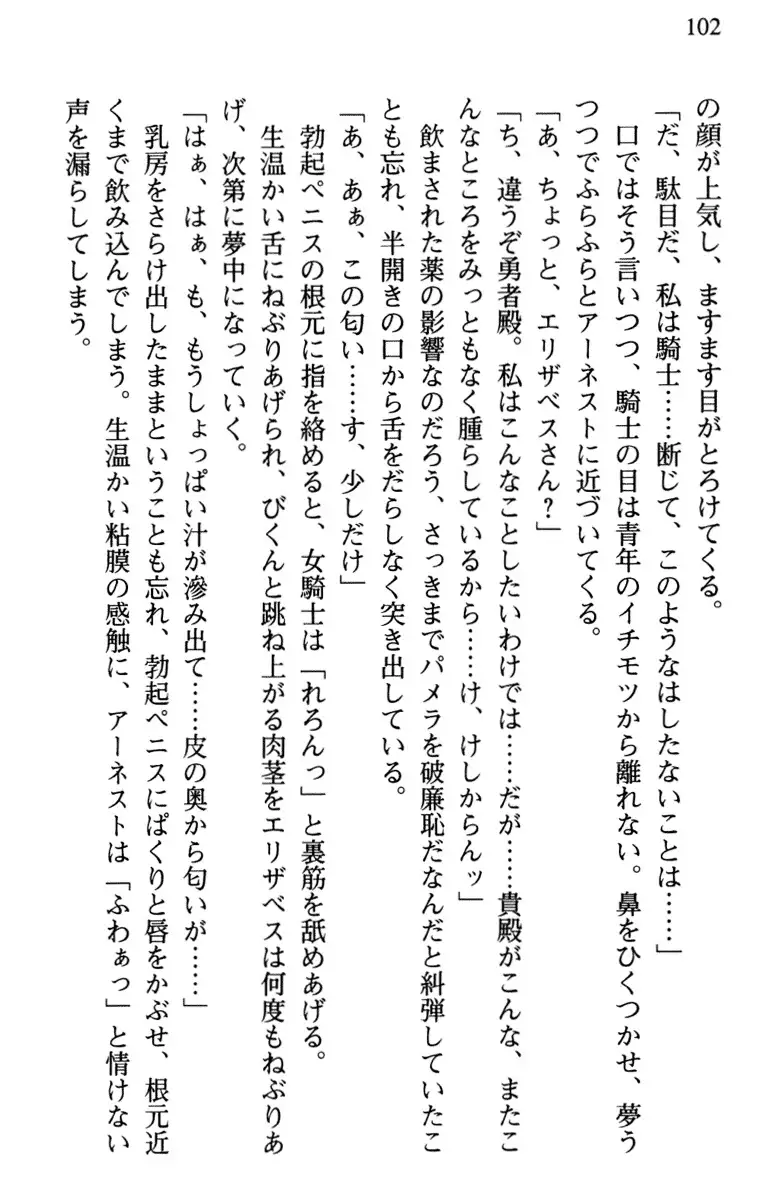 102
の顔が上気し、ますます目がとろけてくる。
「だ、駄目だ、私は騎士……断じて、このようなはしたないことは……」
口ではそう言いつつ、騎士の目は青年のイチモツから離れない。鼻をひくつかせ、夢う
つつでふらふらとアーネストに近づいてくる。
「あ、ちょっと、エリザベスさん？」
「ち、違うぞ勇者殿。私はこんなことしたいわけでは……だが……貴殿がこんな、またこ
んなところをみっともなく腫らしているから……け、けしからんッ」
飲まされた薬の影響なのだろう、さっきまでパメラを破廉恥だなんだと糾弾していたこ
とも忘れ、半開きの口から舌をだらしなく突き出している。
「あ、あぁ、この匂い……す、少しだけ」
勃起ペニスの根元に指を絡めると、女騎士は「れろんっ」と裏筋を舐めあげる。
生温かい舌にねぶりあげられ、びくんと跳ね上がる肉茎をエリザベスは何度もねぶりあ
げ、次第に夢中になっていく。
「はぁ、はぁ、も、もうしょっぱい汁が滲み出て……皮の奥から匂いが……」
乳房をさらけ出したままということも忘れ、勃起ペニスにぱくりと唇をかぶせ、根元近
くまで飲み込んでしまう。生温かい粘膜の感触に、アーネストは「ふわぁっ」と情けない
声を漏らしてしまう。